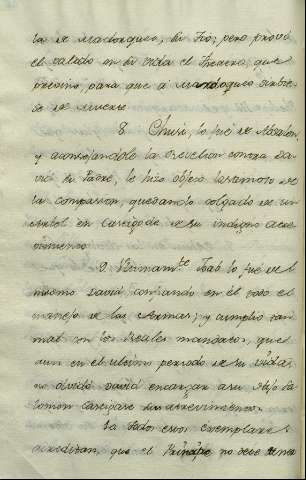 la de Mardoqueo, su Tio; pero provó
el valido en su vida el Madero, que
previno, para que a Mardoqueo sirbie-
se de muerte.
8. Chusi, lo fué de Absalon,
y aconsejandole la revelion contra Da-
vid su Padre, le hizo objeto lastimoso de
la compasion, quedando colgado de un
arbol en castigo de su indigno atre-
vimiento.
9. Ultimamte. Joab lo fué de el
mismo David, confiando en él todo el
manejo de las Armas; y cumplio tan
mal con los Reales mandatos, que
aun en el ultimo periodo de su vida,
no olvidó David encargar a su Hijo Sa-
lomon castigase su atrevimiento.
exemplares
acreditan, que el Principe no deve tener